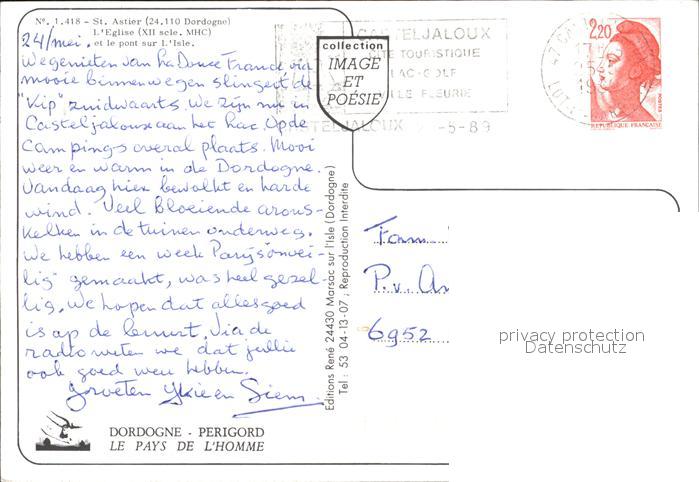 Nº. 1.418 - St. Astier (24.110 Dordogne)
L'Eglise (XII scle. MHC)
et le pont sur L'Isle.
24/mei.
We genieten van la Douce France via
mooie binnenwegen slingert de
"Kip" zuidwaarts. We zijn nu in
Casteljaloux aan het Lac. Op de
Campings overal plaats. Mooi
weer en warm in de Dordogne.
Vandaag hier bewolkt en harde
wind. Veel Bloeiende arons-
kelken in de tuinen onderweg.
We hebben een week Parijs "onvei-
lig" gemaakt, was heel gezel-
lig. We hopen dat alles goed
is op de Lemurt. Via de
radio weten we dat jullie
ook goed weer hebben.
Groeten Ykie en Siem.
DORDOGNE - PERIGORD
LE PAYS DE L'HOMME
Editions René 24430 Marsac sur l'Isle (Dordogne)
Tel : 53 04-13-07 ; Reproduction Interdite
collection
IMAGE
ET
POÉSIE
CASTELJALOUX
CITE TOURISTIQUE
LAC-GOLF
VILLE FLEURIE
CASTELJALOUX -5-89
2,20
REPUBLIQUE FRANÇAISE
Fam
P.v. Am
6952
privacy protection
Datenschutz